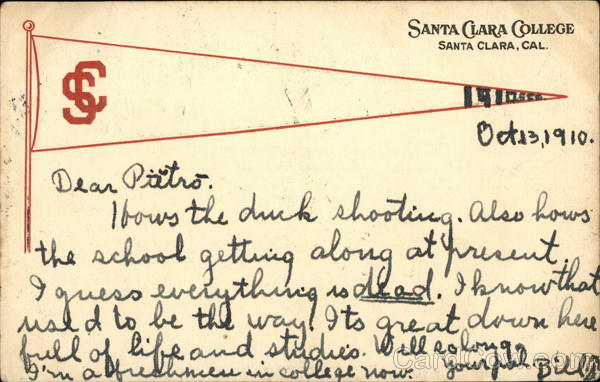 SANTA CLARA COLLEGE
SANTA CLARA, CAL.
SC
1910
Oct 13, 1910.
Dear Pietro.
Hows the duck shooting. Also hows
the school getting along at present.
I guess everything is dead. I know that
used to be the way. Its great down here
full of life and studies. Well so long
I'm a freshmen in college now. your pal. Bill
CardCow.com